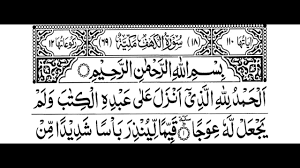 اٰیَاتُهَا ١١٠ (١٨) سُوْرَةُ الْكَهْفِ مَكِّیَّةٌ (٦٩) رُكُوْعَاتُهَا ١٢
بِسْمِ اللّٰهِ الرَّحْمٰنِ الرَّحِیْمِ
اَلْحَمْدُ لِلّٰهِ الَّذِیْۤ اَنْزَلَ عَلٰى عَبْدِهِ الْكِتٰبَ وَلَمْ
یَجْعَلْ لَّهٗ عِوَجًا ۝١ قَیِّمًا لِّیُنْذِرَ بَاْسًا شَدِیْدًا مِّنْ